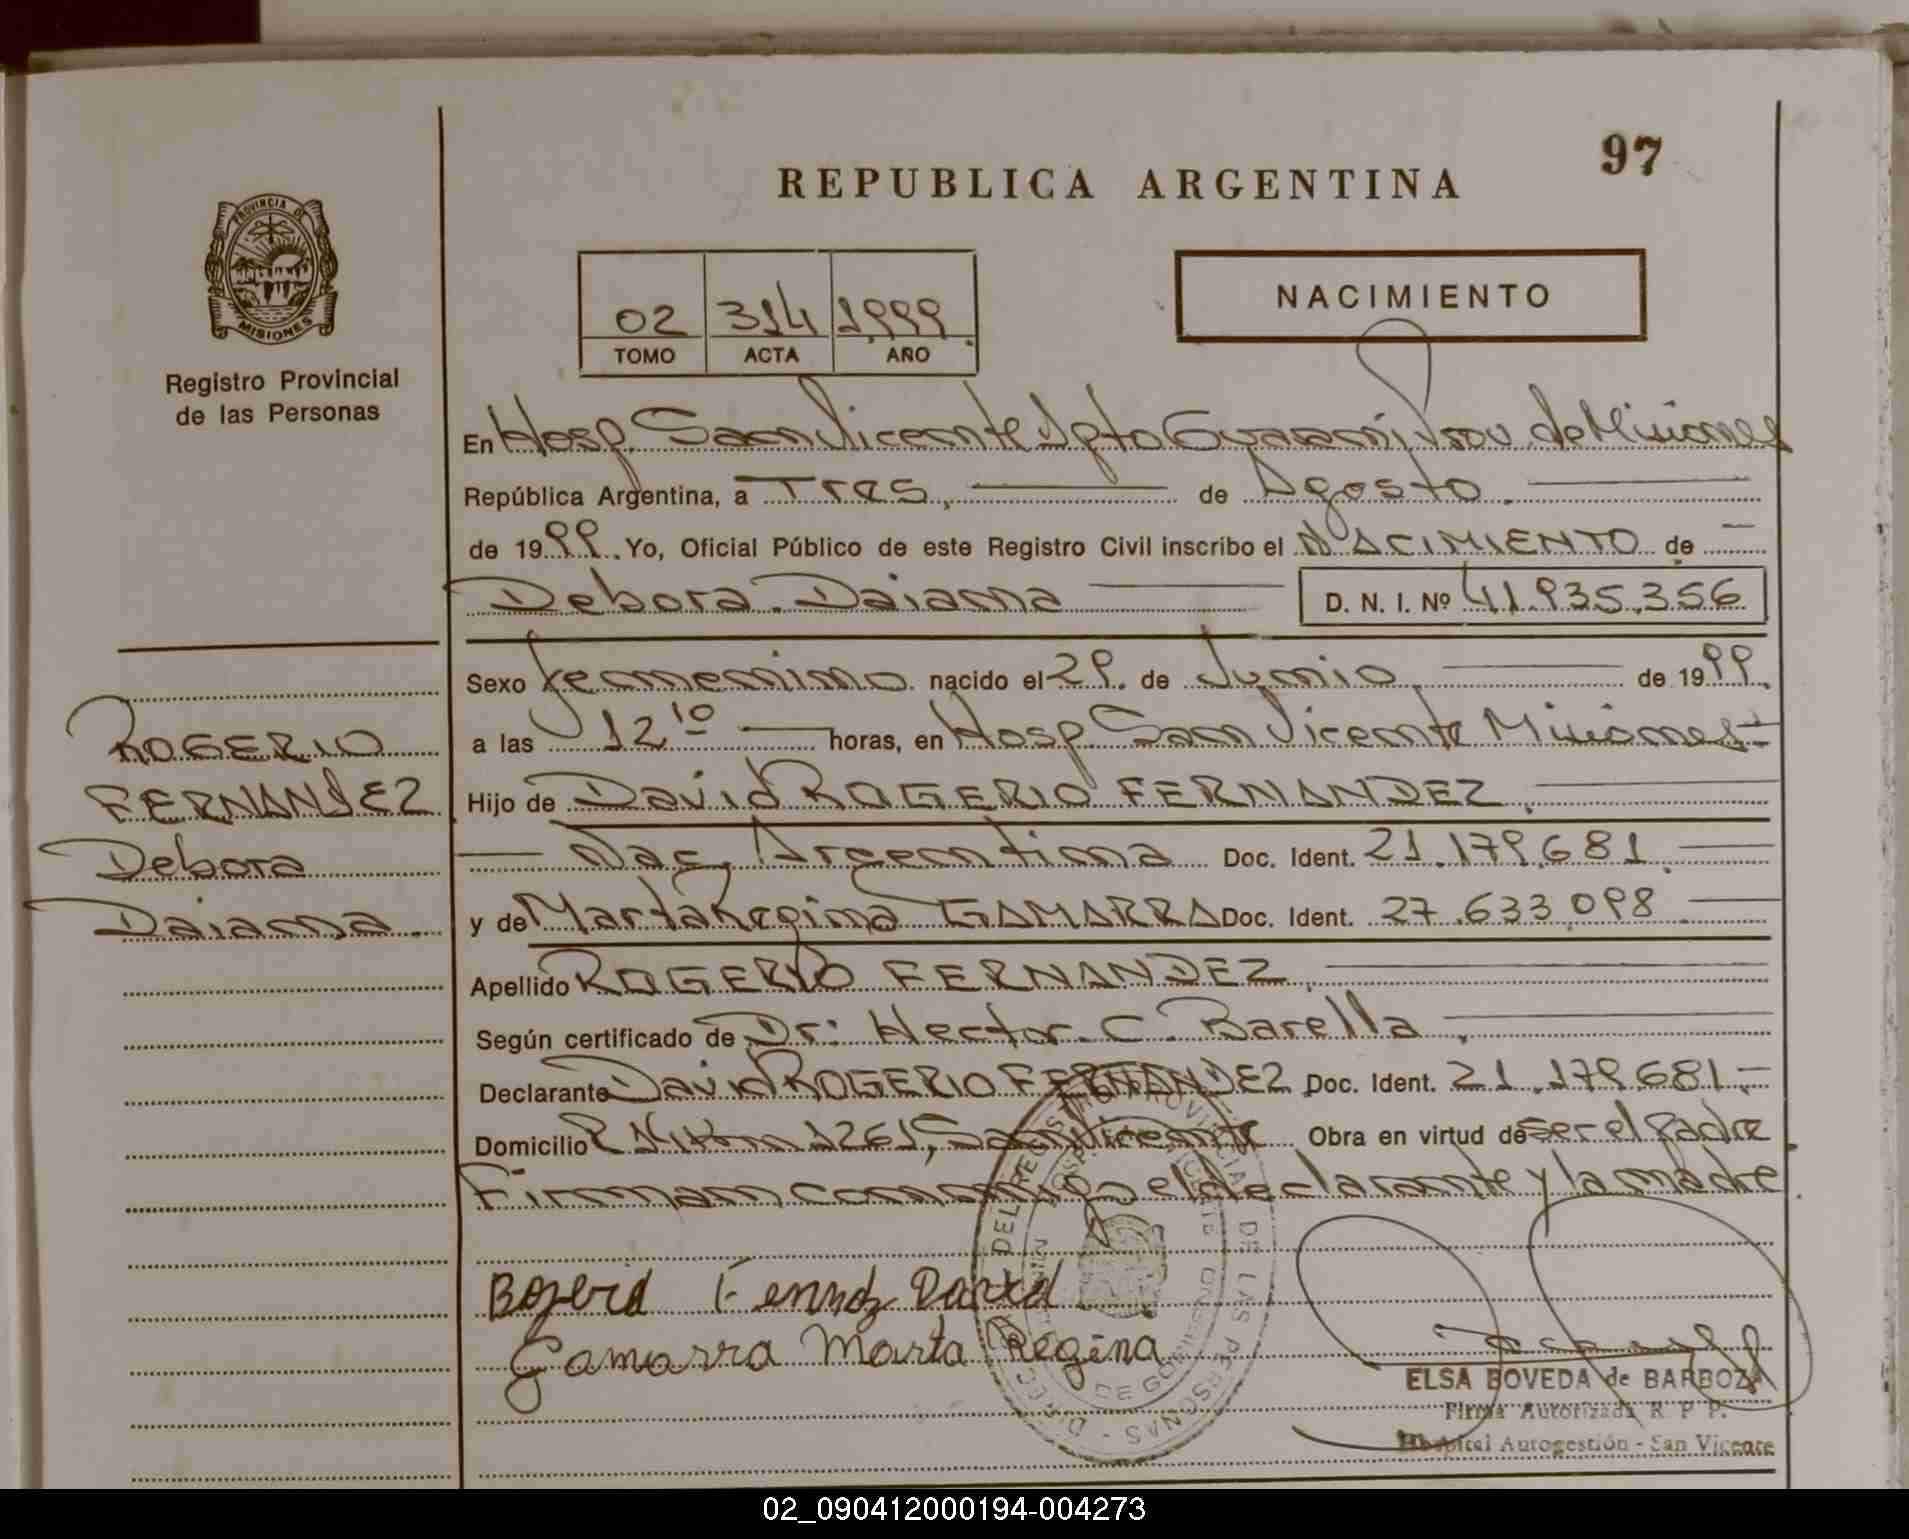 97
REPUBLICA ARGENTINA
PROVINCIA DE
MISIONES
Registro Provincial
de las Personas
02 314 1999
TOMO ACTA AÑO
NACIMIENTO
En Hosp. San Vicente Dpto Guaraní Prov. de Misiones
República Argentina, a Tres, de Agosto.
de 1999. Yo, Oficial Público de este Registro Civil inscribo el NACIMIENTO de
Debora Daiana D. N. I. Nº 41.935.356
Sexo femenino nacido el 29. de Junio de 1999.
a las 12 10 horas, en Hosp San Vicente Misiones
ROGERIO
FERNANDEZ
Debora
Daiana.
Hijo de David ROGERIO FERNANDEZ.
Nac. Argentina Doc. Ident. 21.179.681.
y de Marta Regina GAMARRA Doc. Ident. 27.633.098
Apellido ROGERIO FERNANDEZ.
Según certificado de Dr: Hector. C. Barella.
Declarante David ROGERIO FERNANDEZ Doc. Ident. 21.179.681.-
Domicilio R Nº Km 1261, San Vicente Obra en virtud de Ser el padre
Firman conmigo el declarante y la madre.
Gamarra Marta Regina
DEL REGISTRO PROVINCIAL DE LAS PERSONAS
ELSA BOVEDA de BARBOZA
Firma Autorizada R. P. P.
Hospital Autogestión - San Vicente
02_090412000194-004273